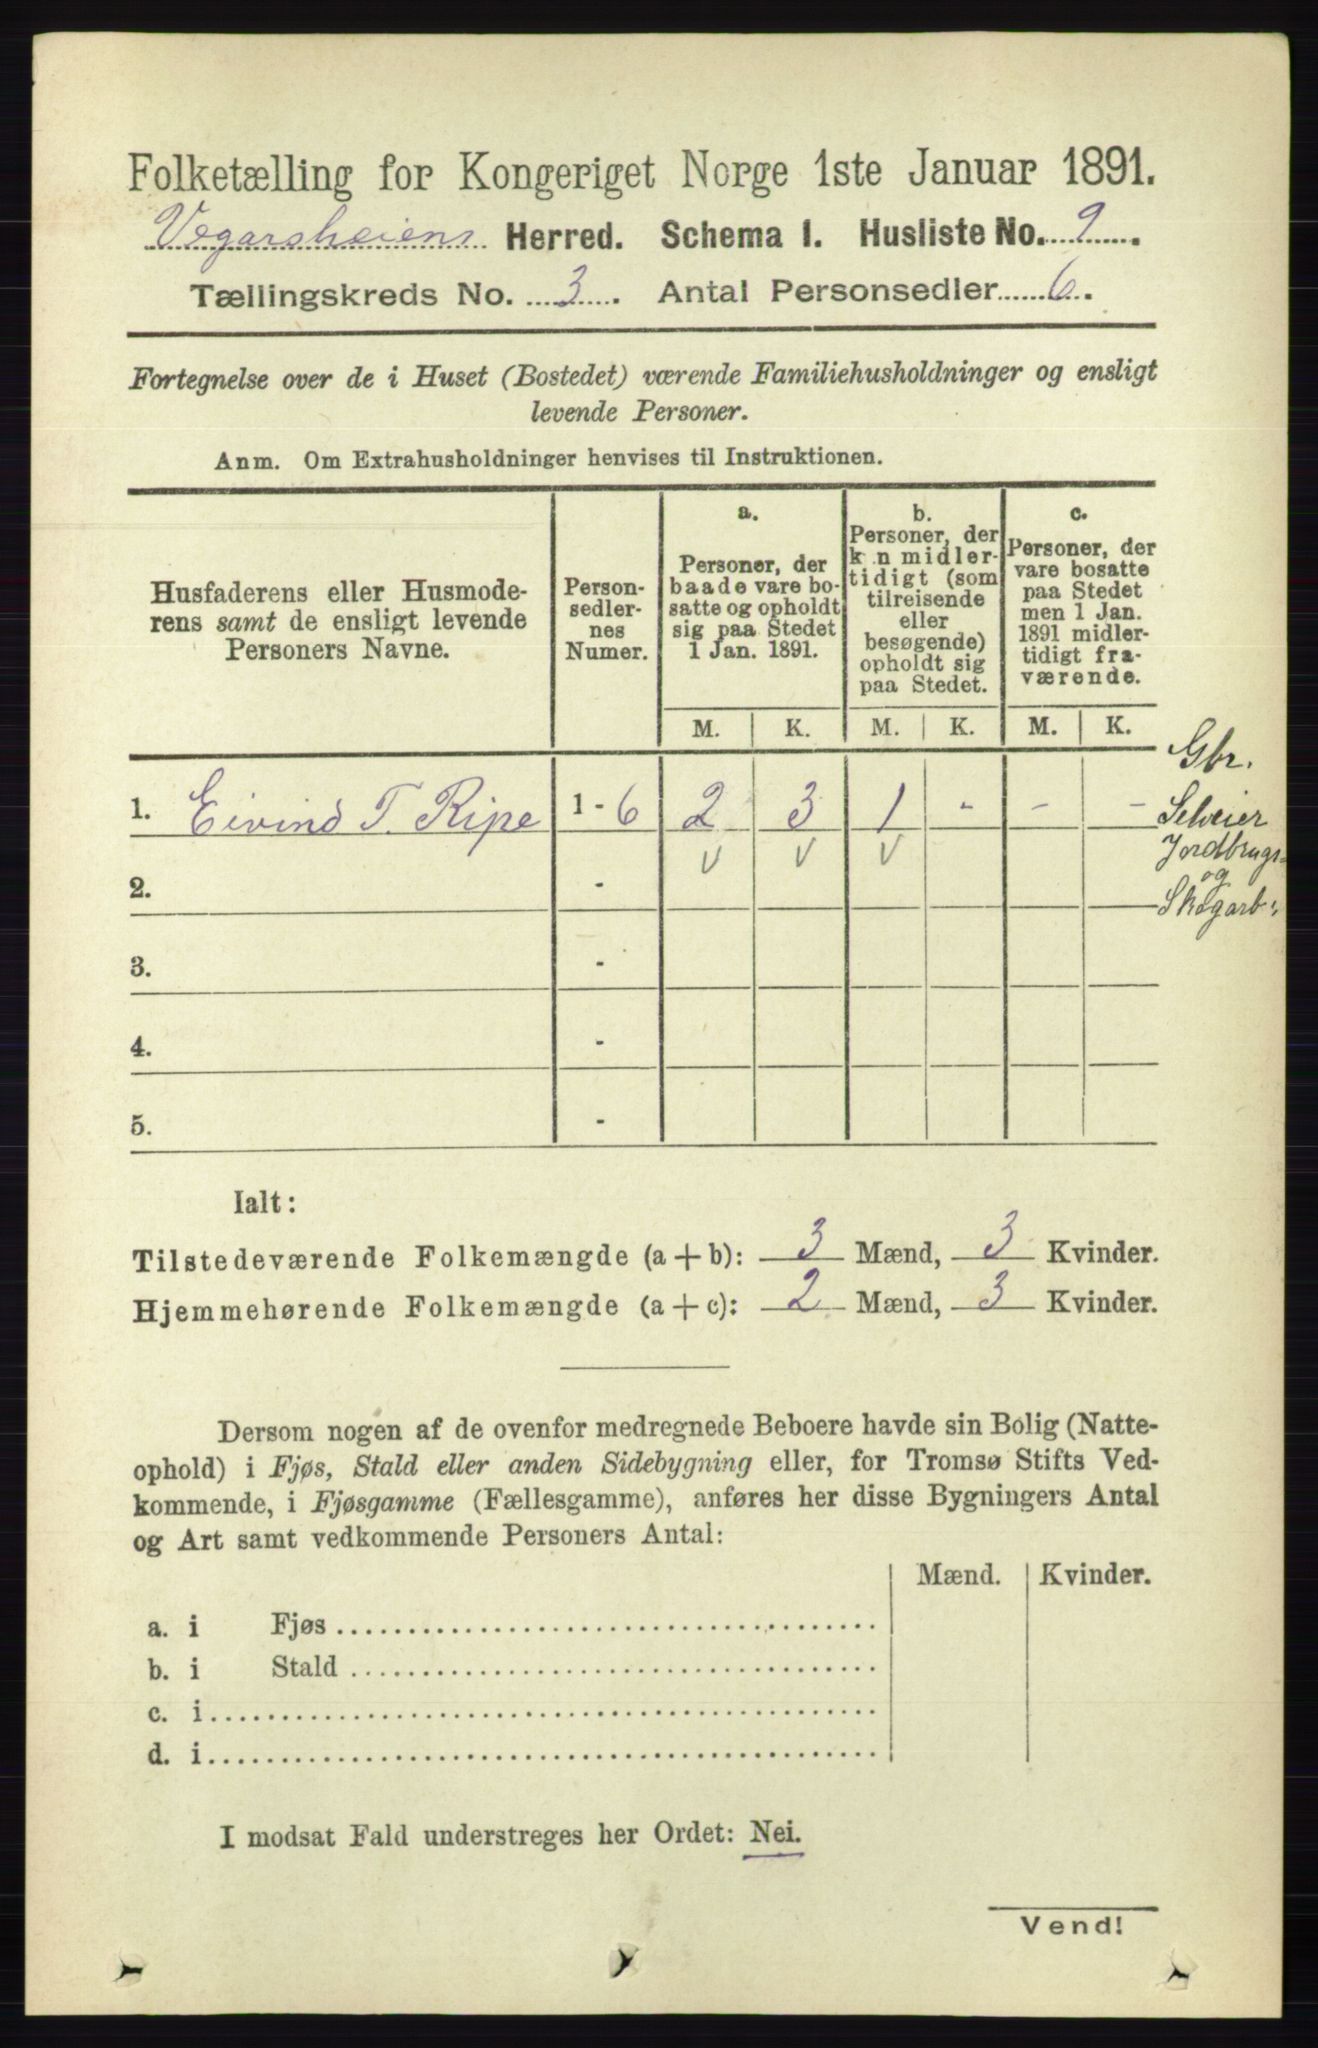 Folketælling for Kongeriget Norge 1ste Januar 1891.
Vegarsheiens Herred. Schema 1. Husliste No. 9.
Tællingskreds No. 3. Antal Personsedler 6.
Fortegnelse over de i Huset (Bostedet) værende Familiehusholdninger og ensligt
levende Personer.
Anm. Om Extrahusholdninger henvises til Instruktionen.
Husfaderens eller Husmode-
rens samt de ensligt levende
Personers Navne.
Person-
sedler-
nes
Numer.
a.
Personer, der
baade vare bo-
satte og opholdt
sig paa Stedet
1 Jan. 1891.
b.
Personer, der
k n midler-
tidigt (som
tilreisende
eller
besøgende)
opholdt sig
paa Stedet.
c.
Personer, der
vare bosatte
paa Stedet
men 1 Jan.
1891 midler-
tidigt fra-
værende.
M. K. M. K. M. K.
Gbr.
1. Eivind T. Ripe 1 - 6 2 3 1 - - -
Selveier
Jordbrugs-
og
Skogarb:
v v v
2. -
3. -
4. -
5. -
Ialt:
Tilstedeværende Folkemængde (a + b): 3 Mænd, 3 Kvinder.
Hjemmehørende Folkemængde (a + c): 2 Mænd, 3 Kvinder.
Dersom nogen af de ovenfor medregnede Beboere havde sin Bolig (Natte-
ophold) i Fjøs, Stald eller anden Sidebygning eller, for Tromsø Stifts Ved-
kommende, i Fjøsgamme (Fællesgamme), anføres her disse Bygningers Antal
og Art samt vedkommende Personers Antal:
Mænd. Kvinder.
a. i Fjøs
b. i Stald
c. i
d. i
I modsat Fald understreges her Ordet: Nei.
Vend!